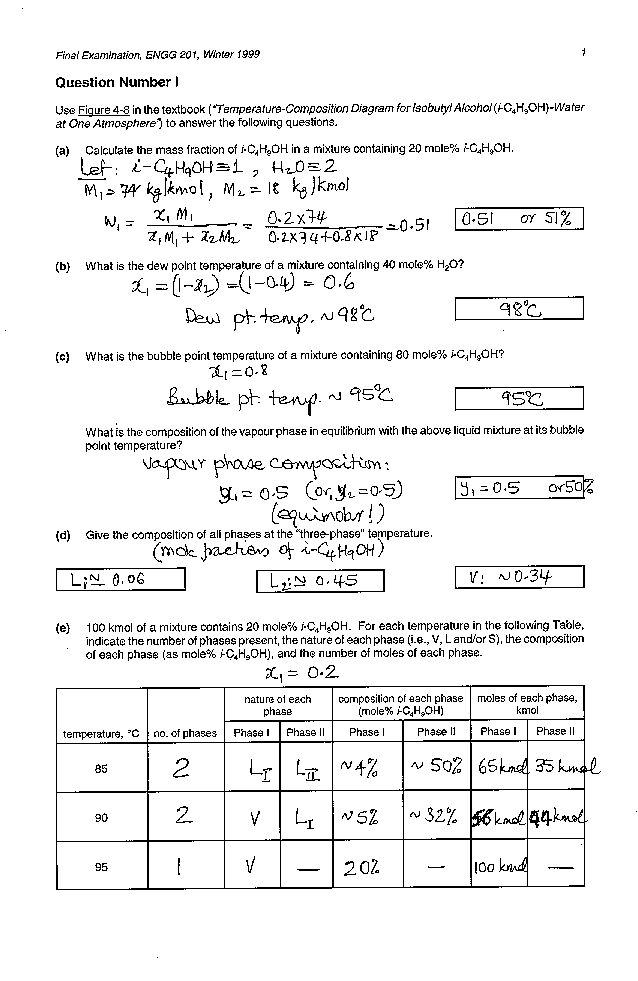 Final Examination, ENGG 201, Winter 1999 1
Question Number I
Use Figure 4-8 in the textbook ("Temperature-Composition Diagram for Isobutyl Alcohol (i-C₄H₉OH)-Water
at One Atmosphere") to answer the following questions.
(a) Calculate the mass fraction of i-C₄H₉OH in a mixture containing 20 mole% i-C₄H₉OH.
Let: i-C₄H₉OH≡1 , H₂O≡2
M₁=74 kg/kmol, M₂=18 kg/kmol
W₁ = x₁M₁ / x₁M₁+x₂M₂ = 0.2x74 / 0.2x74+0.8x18 =0.51 0.51 or 51%
(b) What is the dew point temperature of a mixture containing 40 mole% H₂O?
x₁ =(1-x₂) =(1-0.4) = 0.6
Dew pt. temp. ~98°C 98°C
(c) What is the bubble point temperature of a mixture containing 80 mole% i-C₄H₉OH?
x₁=0.8
Bubble pt. temp. ~ 95°C 95°C
What is the composition of the vapour phase in equilibrium with the above liquid mixture at its bubble
point temperature?
Vapour phase composition:
y₁ = 0.5 (or, y₂ =0.5) y₁ = 0.5 or 50%
(equimolar!)
(d) Give the composition of all phases at the "three-phase" temperature.
(mole fraction of i-C₄H₉OH)
L₁: ~ 0.06 L₂: ~ 0.45 V: ~0.34
(e) 100 kmol of a mixture contains 20 mole% i-C₄H₉OH. For each temperature in the following Table,
indicate the number of phases present, the nature of each phase (i.e., V, L and/or S), the composition
of each phase (as mole% i-C₄H₉OH), and the number of moles of each phase.
x₁ = 0.2
nature of each phase composition of each phase (mole% i-C₄H₉OH) moles of each phase, kmol
temperature, °C no. of phases Phase I Phase II Phase I Phase II Phase I Phase II
85 2 L_I L_II ~4% ~ 50% 65 kmol 35 kmol
90 2 V L_I ~5% ~32% 56 kmol 44 kmol
95 1 V — 20% — 100 kmol —